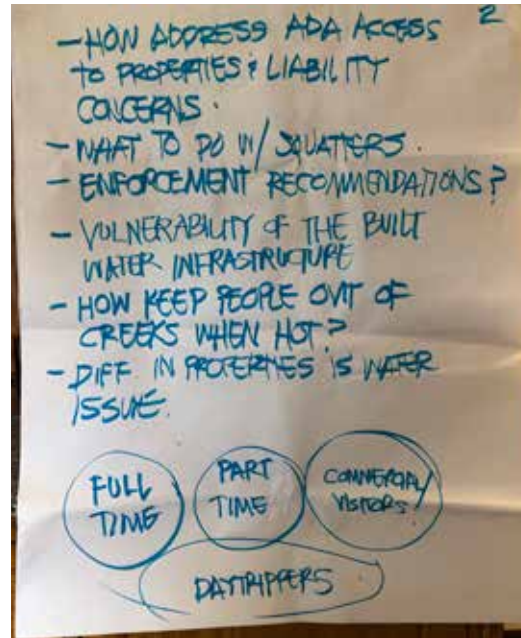 2
- HOW ADDRESS ADA ACCESS
TO PROPERTIES & LIABILITY
CONCERNS.
- WHAT TO DO W/ SQUATTERS.
- ENFORCEMENT RECOMMENDATIONS?
- VULNERABILITY OF THE BUILT
WATER INFRASTRUCTURE
- HOW KEEP PEOPLE OUT OF
CREEKS WHEN HOT?
- DIFF IN PROPERTIES IS WATER
ISSUE.
FULL
TIME
PART
TIME
COMMERCIAL/
VISITORS
DAYTRIPPERS